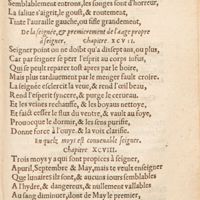 Semblablement entrons, les songes sont d'horreur,
La saliue s'aigrit, le goust, & rontement,
Tinte l'auraille gauche, ou siste grandement,
De la seignée, & premierement de l'aage propre
à seigner. Chapitre XCVII.
Seigner point on ne doibt qu'à dixsept ans, ou plus,
Car par seigner se pert l'esprit au corps infus,
Qui se peult reparer tost apres par le boire,
Mais plus tardiuement par le menger fault croire.
La seignée esclercit la veue, & rend l'œil beau,
Rend l'esprit syncere, & purge le cerueau,
Et les veines rechauffe, & les boyaux nettoye,
Et faict cesser le flux du ventre, & vault au foye,
Prouoque le dormir, & les sens purifie,
Donne force à l'ouye, & la voix clarifie.
En quelz moys est conuenable seigner.
Chapitre XCVIII.
Trois moys y a qui sont propices à seigner,
Apuril, Septembre & May, mais te veulx enseigner
Que lunaires ilz sont, & aucuns iours semblables
A l'hydre, & dangereux, & nullement vallables
Au sang diminuer, dont de May le premier,